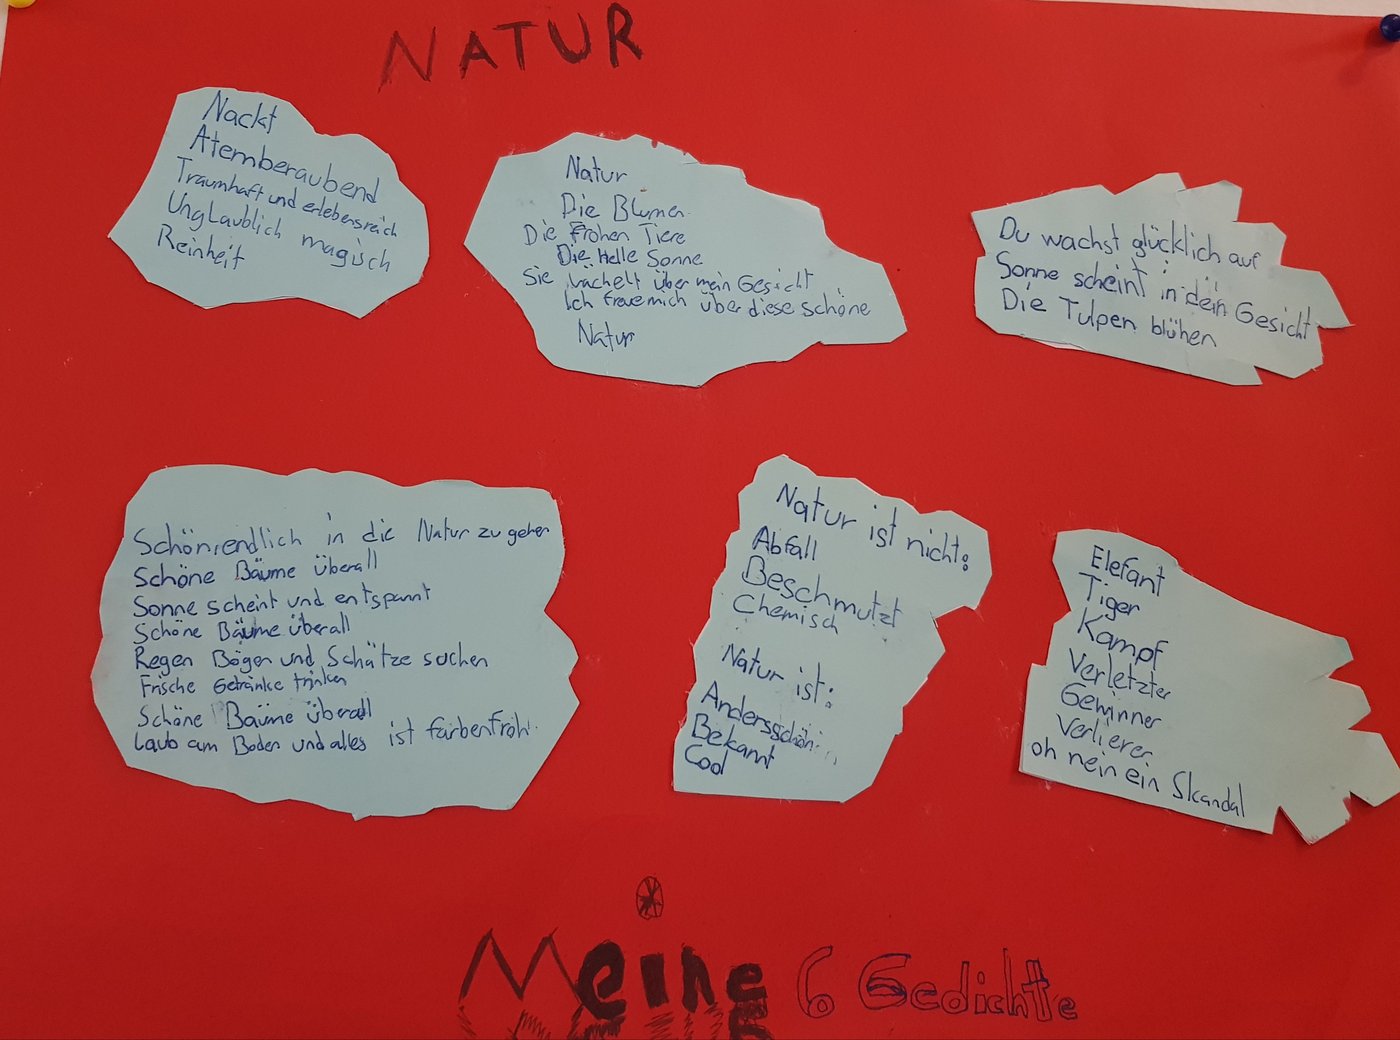 NATUR
Nackt
Atemberaubend
Traumhaft und erlebensreich
Unglaublich magisch
Reinheit
Natur
Die Blumen
Die frohen Tiere
Die Helle Sonne
Sie lächelt über mein Gesicht
Ich freue mich über diese schöne
Natur
Du wachst glücklich auf
Sonne scheint in dein Gesicht
Die Tulpen blühen
in die Natur zu gehen
Schöne Bäume überall
Sonne scheint und entspannt
Schöne Bäume überall
Regen Bögen und Schätze suchen
Frische Getränke trinken
Schöne Bäume überall
Laub am Boden und alles ist farbenfroh.
Natur ist nicht:
Abfall
Beschmutzt
Chemisch
Natur ist:
Andersschön
Bekannt
Cool
Elefant
Tiger
Kampf
Verletzter
Gewinner
Verlierer
oh nein ein Skandal
Meine 6 Gedichte